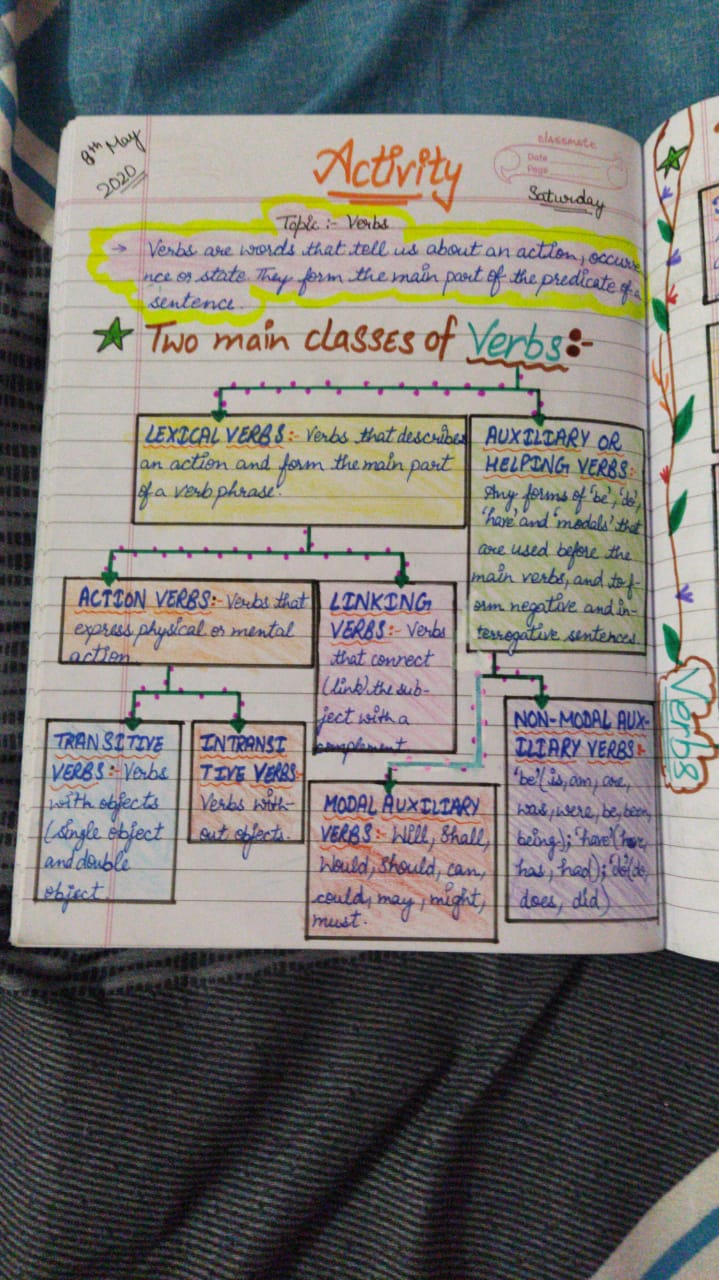 8th May
2020
Activity
classmate
Date
Page
Saturday
Topic :- Verbs
→ Verbs are words that tell us about an action, occurre
nce or state. They form the main part of the predicate of a
sentence.
Two main classes of Verbs:-
LEXICAL VERBS:- Verbs that describes
an action and form the main part
of a verb phrase.
AUXILIARY OR
HELPING VERBS:-
Any forms of 'be', 'do',
'have' and 'modals' that
are used before the
main verbs, and to f-
orm negative and in-
terrogative sentences.
ACTION VERBS:- Verbs that
express physical or mental
action.
LINKING
VERBS:- Verbs
that connect
(link) the sub-
ject with a
complement.
TRANSITIVE
VERBS:- Verbs
with objects
(single object
and double
object.
INTRANSI
TIVE VERBS-
Verbs with-
out objects.
MODAL AUXILIARY
VERBS:- Will, Shall,
Would, Should, can,
could, may, might,
must.
NON-MODAL AUX-
ILIARY VERBS:-
'be'(is, am, are,
was, were, be, been,
being); 'have'(have,
has, had); 'do'(do,
does, did)
Verbs